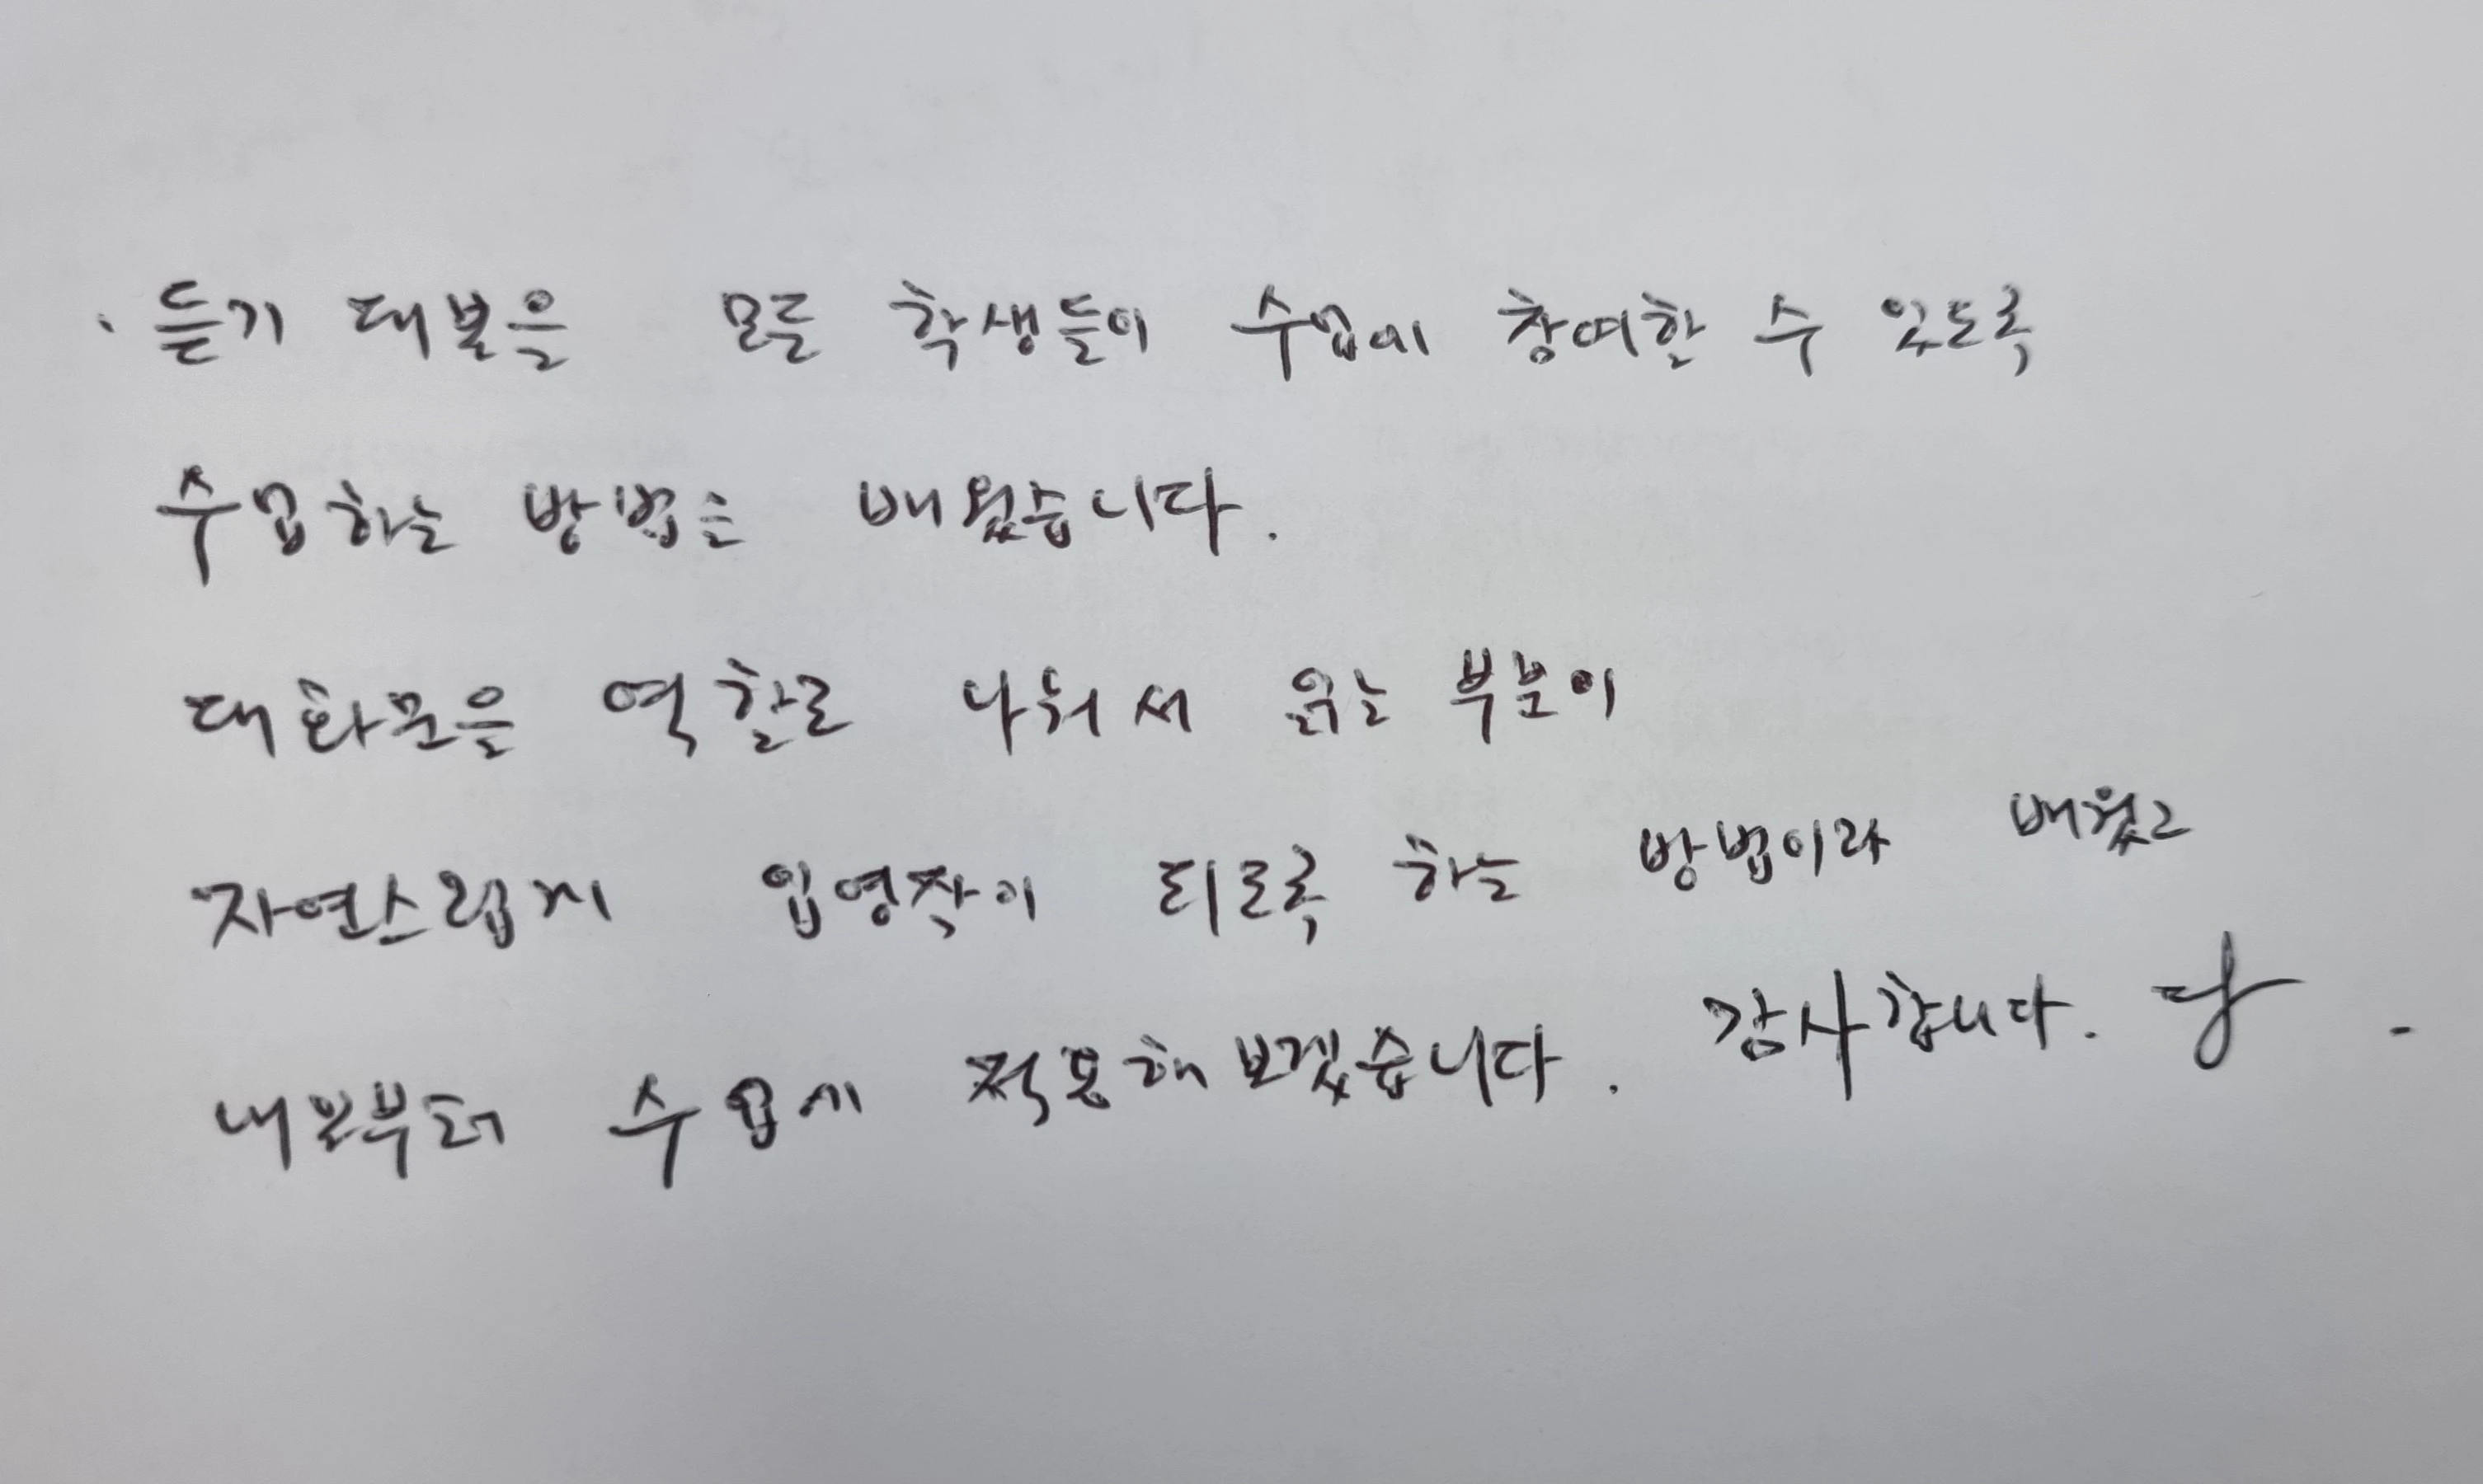 · 듣기 대본을 모든 학생들이 수업에 참여할 수 있도록
수업하는 방법을 배웠습니다.
대화문을 역할로 나눠서 읽는 부분이
자연스럽게 입영작이 되도록 하는 방법이라 배웠고
내일부터 수업에 적용해 보겠습니다. 감사합니다.